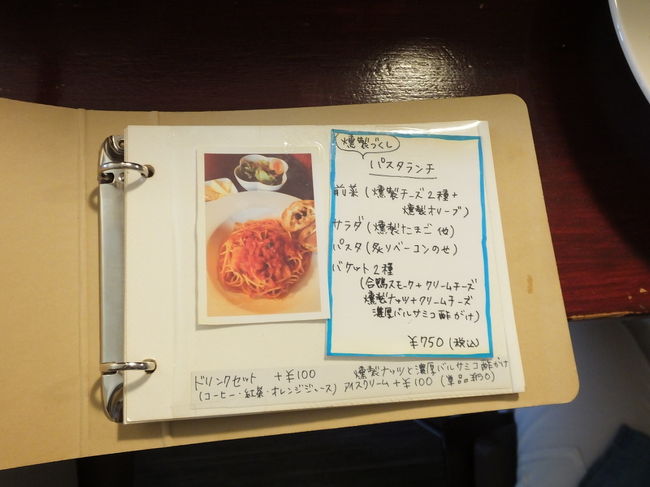 燻製づくし
パスタランチ
前菜(燻製チーズ2種+
燻製オリーブ)
サラダ(燻製たまご他)
パスタ(炙りベーコンのせ)
バゲット2種
(合鴨スモーク+クリームチーズ
燻製ナッツ+クリームチーズ
濃厚バルサミコ酢がけ)
¥750(税込)
ドリンクセット +¥100
(コーヒー・紅茶・オレンジジュース)
燻製ナッツと濃厚バルサミコ酢がけ
アイスクリーム+¥100(単品